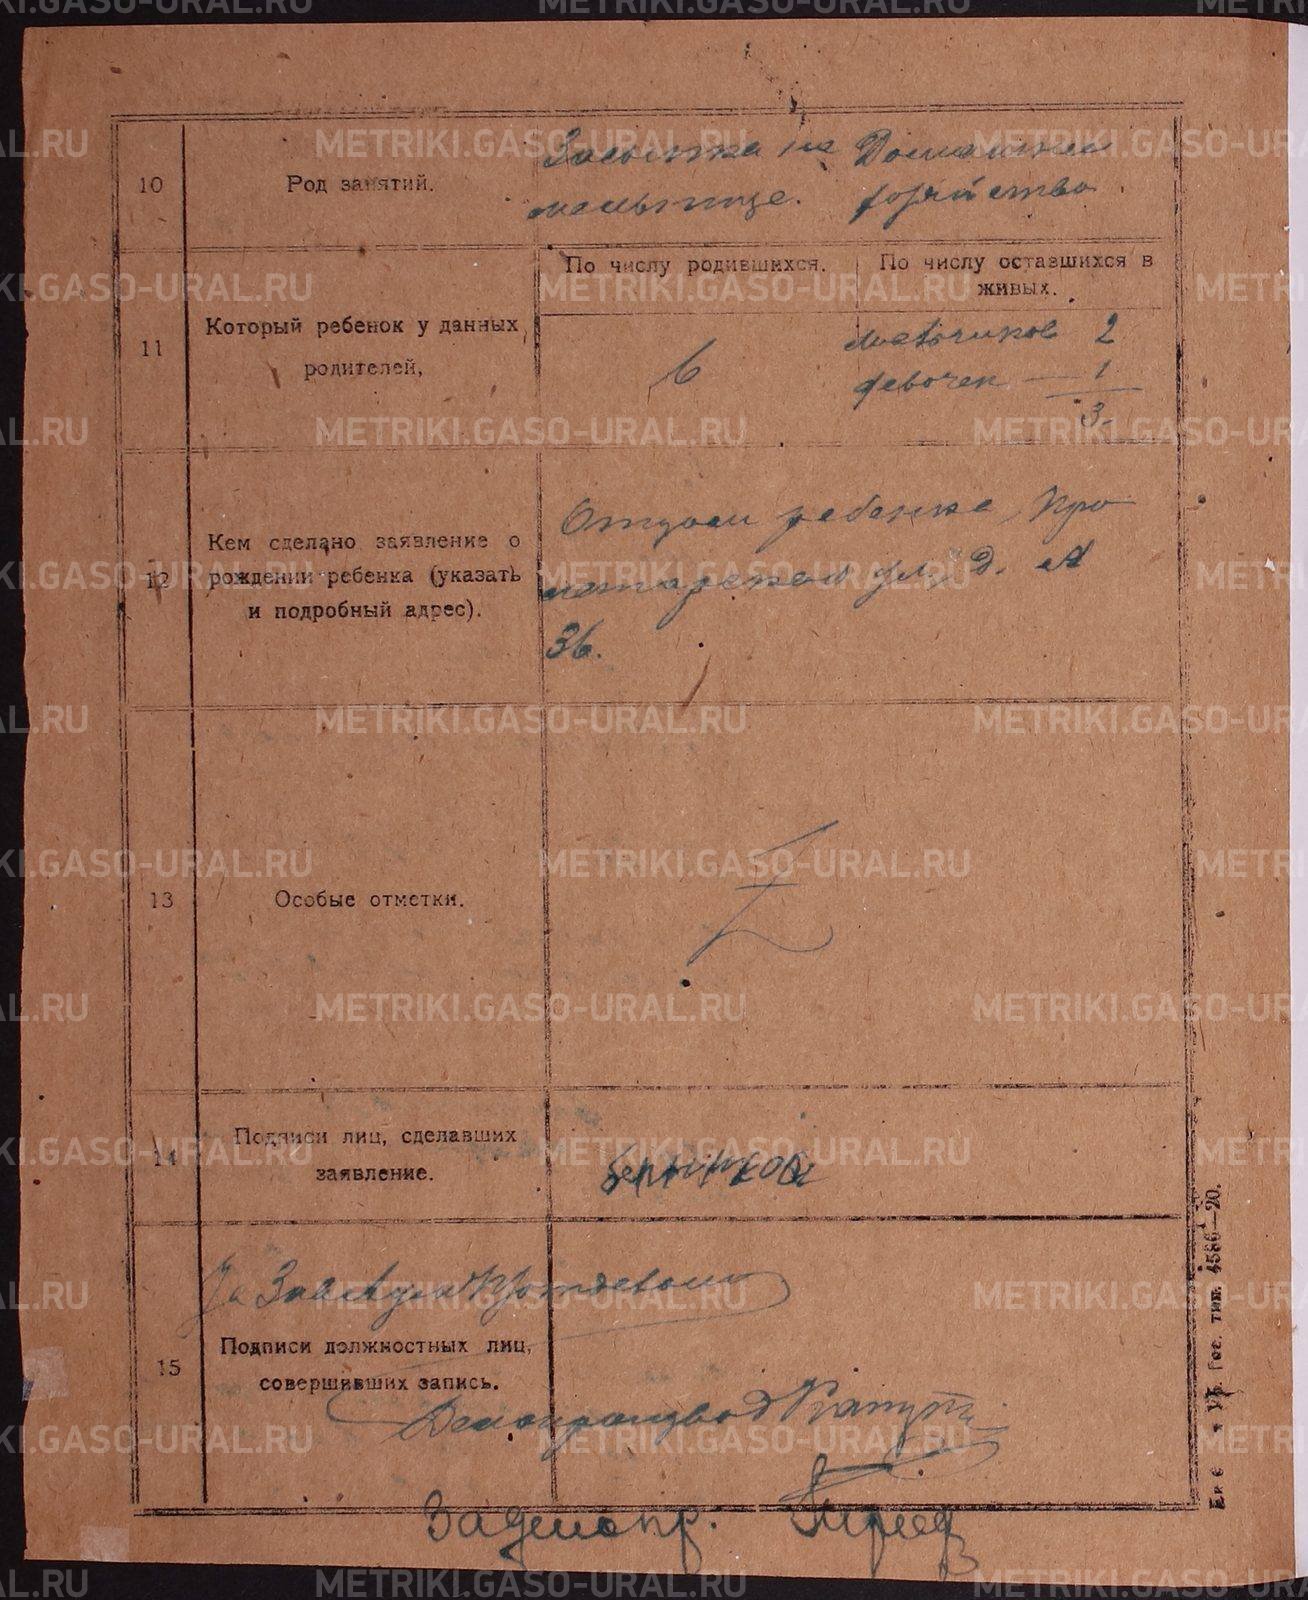 10
Род занятий.
Засыпка на
мельнице.
Домашнее
хозяйство
11
Который ребенок у данных
родителей,
По числу родившихся.
По числу оставшихся в
живых.
6
мальчиков 2
девочек — 1
3.
12
Кем сделано заявление о
рождении ребенка (указать
и подробный адрес).
Отцом ребенка, Про
летарская ул., д. №
36.
13
Особые отметки.
14
Подписи лиц, сделавших
заявление.
15
За Зав
Подписи должностных лиц,
совершивших запись.
Делопроизвод
За делопр.
Гос. тип. 4586—20.
METRIKI.GASO-URAL.RU